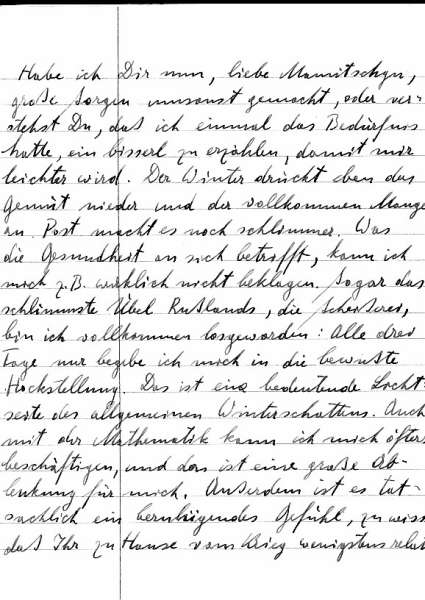 Habe ich Dir nun, liebe Mamitschgn,
große Sorgen umsonst gemacht, oder ver-
stehst Du, daß ich einmal das Bedürfnis
hatte, ein bisserl zu erzählen, damit mir
leichter wird. Der Winter drückt eben das
Gemüt nieder und der vollkommen Mange
an Post macht es noch schlimmer. Was
die Gesundheit an sich betrifft, kann ich
mich z.B. wirklich nicht beklagen. Sogar das
schlimmste Übel Rußlands, die Scheißerei,
bin ich vollkommen losgeworden: Alle drei
Tage nur begebe ich mich in die bewußte
Hockstellung. Das ist eine bedeutende Licht-
seite des allgemeinen Winterschattens. Auch
mit der Mathematik kann ich mich öfters
beschäftigen, und das ist eine große Ab-
lenkung für mich. Außerdem ist es tat-
sächlich ein beruhigendes Gefühl, zu wiss
daß Ihr zu Hause vom Krieg wenigstens relat